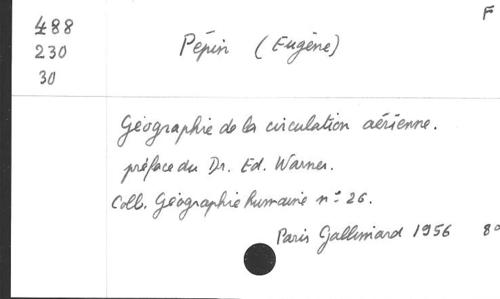 F
488
230
30
Pépin (Eugène)
Géographie de la circulation aérienne.
préface du Dr. Ed. Warner.
Coll. Géographie humaine n° 26.
Paris Gallimard 1956 8°